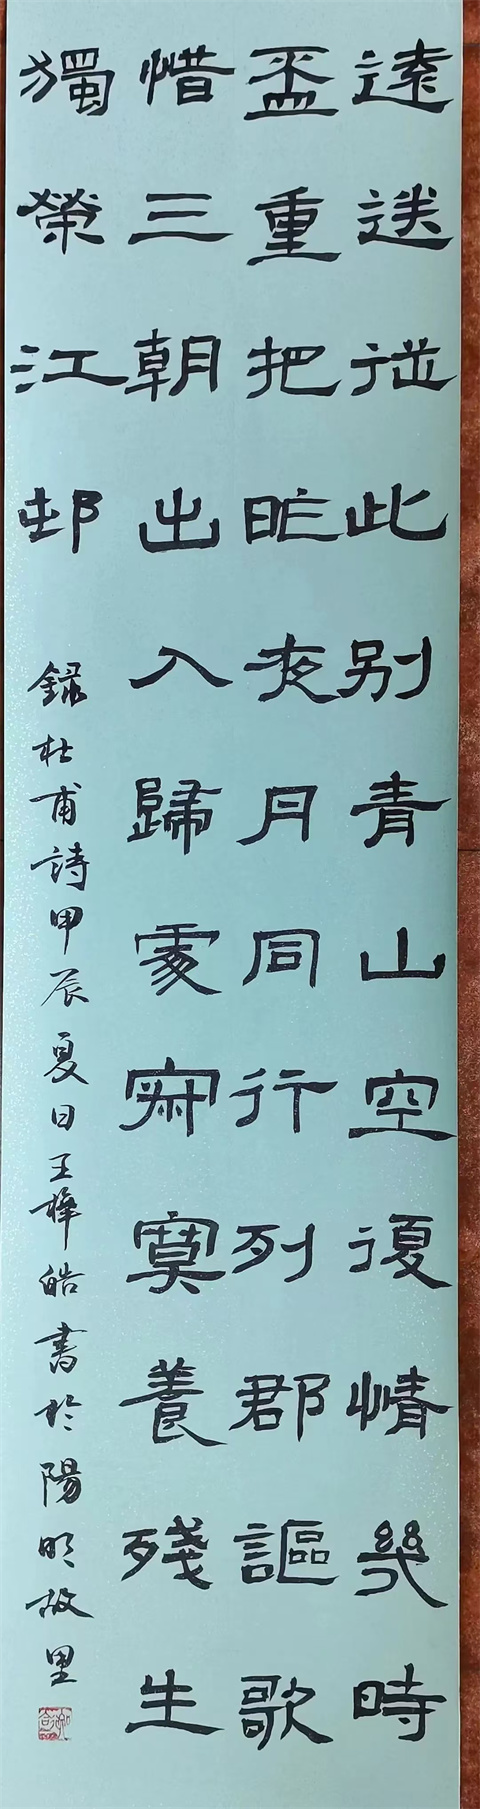 遠送從此别青山空復情幾時
盃重把昨夜月同行列郡謳歌
惜三朝出入歸處寂寞養殘生
獨榮江邨
錄杜甫詩甲辰夏日王樺皓書於陽明故里